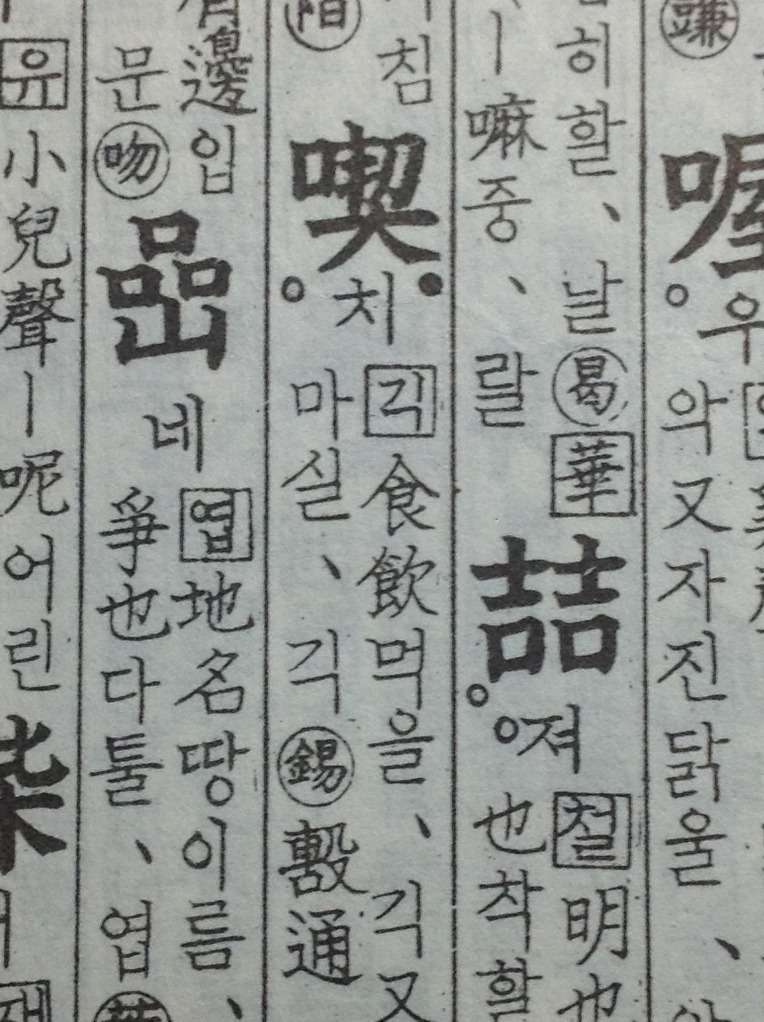 喔
우
악又자진닭울、
히할、날曷華
丨嘛중、랄
喆
져
철明也
也착할
침
喫
치
긱食飮먹을、긱又
마실、긱錫
通
邊입
문吻
喦
네
엽地名땅이름、
爭也다툴、엽
유小兒聲丨呢어린